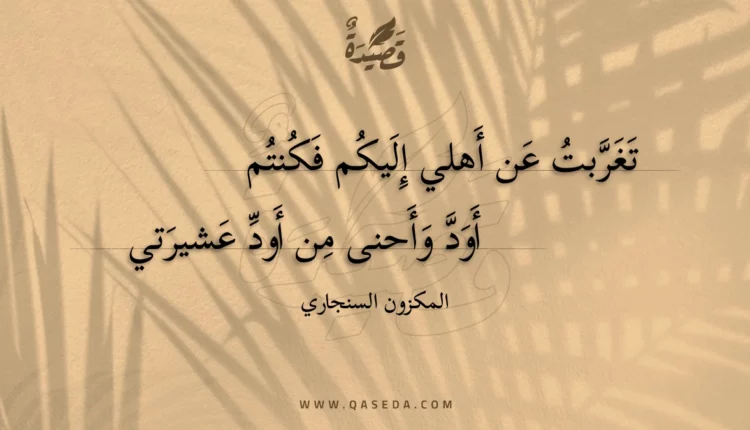 قَصِيْدَةٌ
تَغَرَّبتُ عَن أَهلي إِلَيكُم فَكُنتُم
أَوَدَّ وَأَحنى مِن أَودِّ عَشيرَتي
المكزون السنجاري
WWW.QASEDA.COM